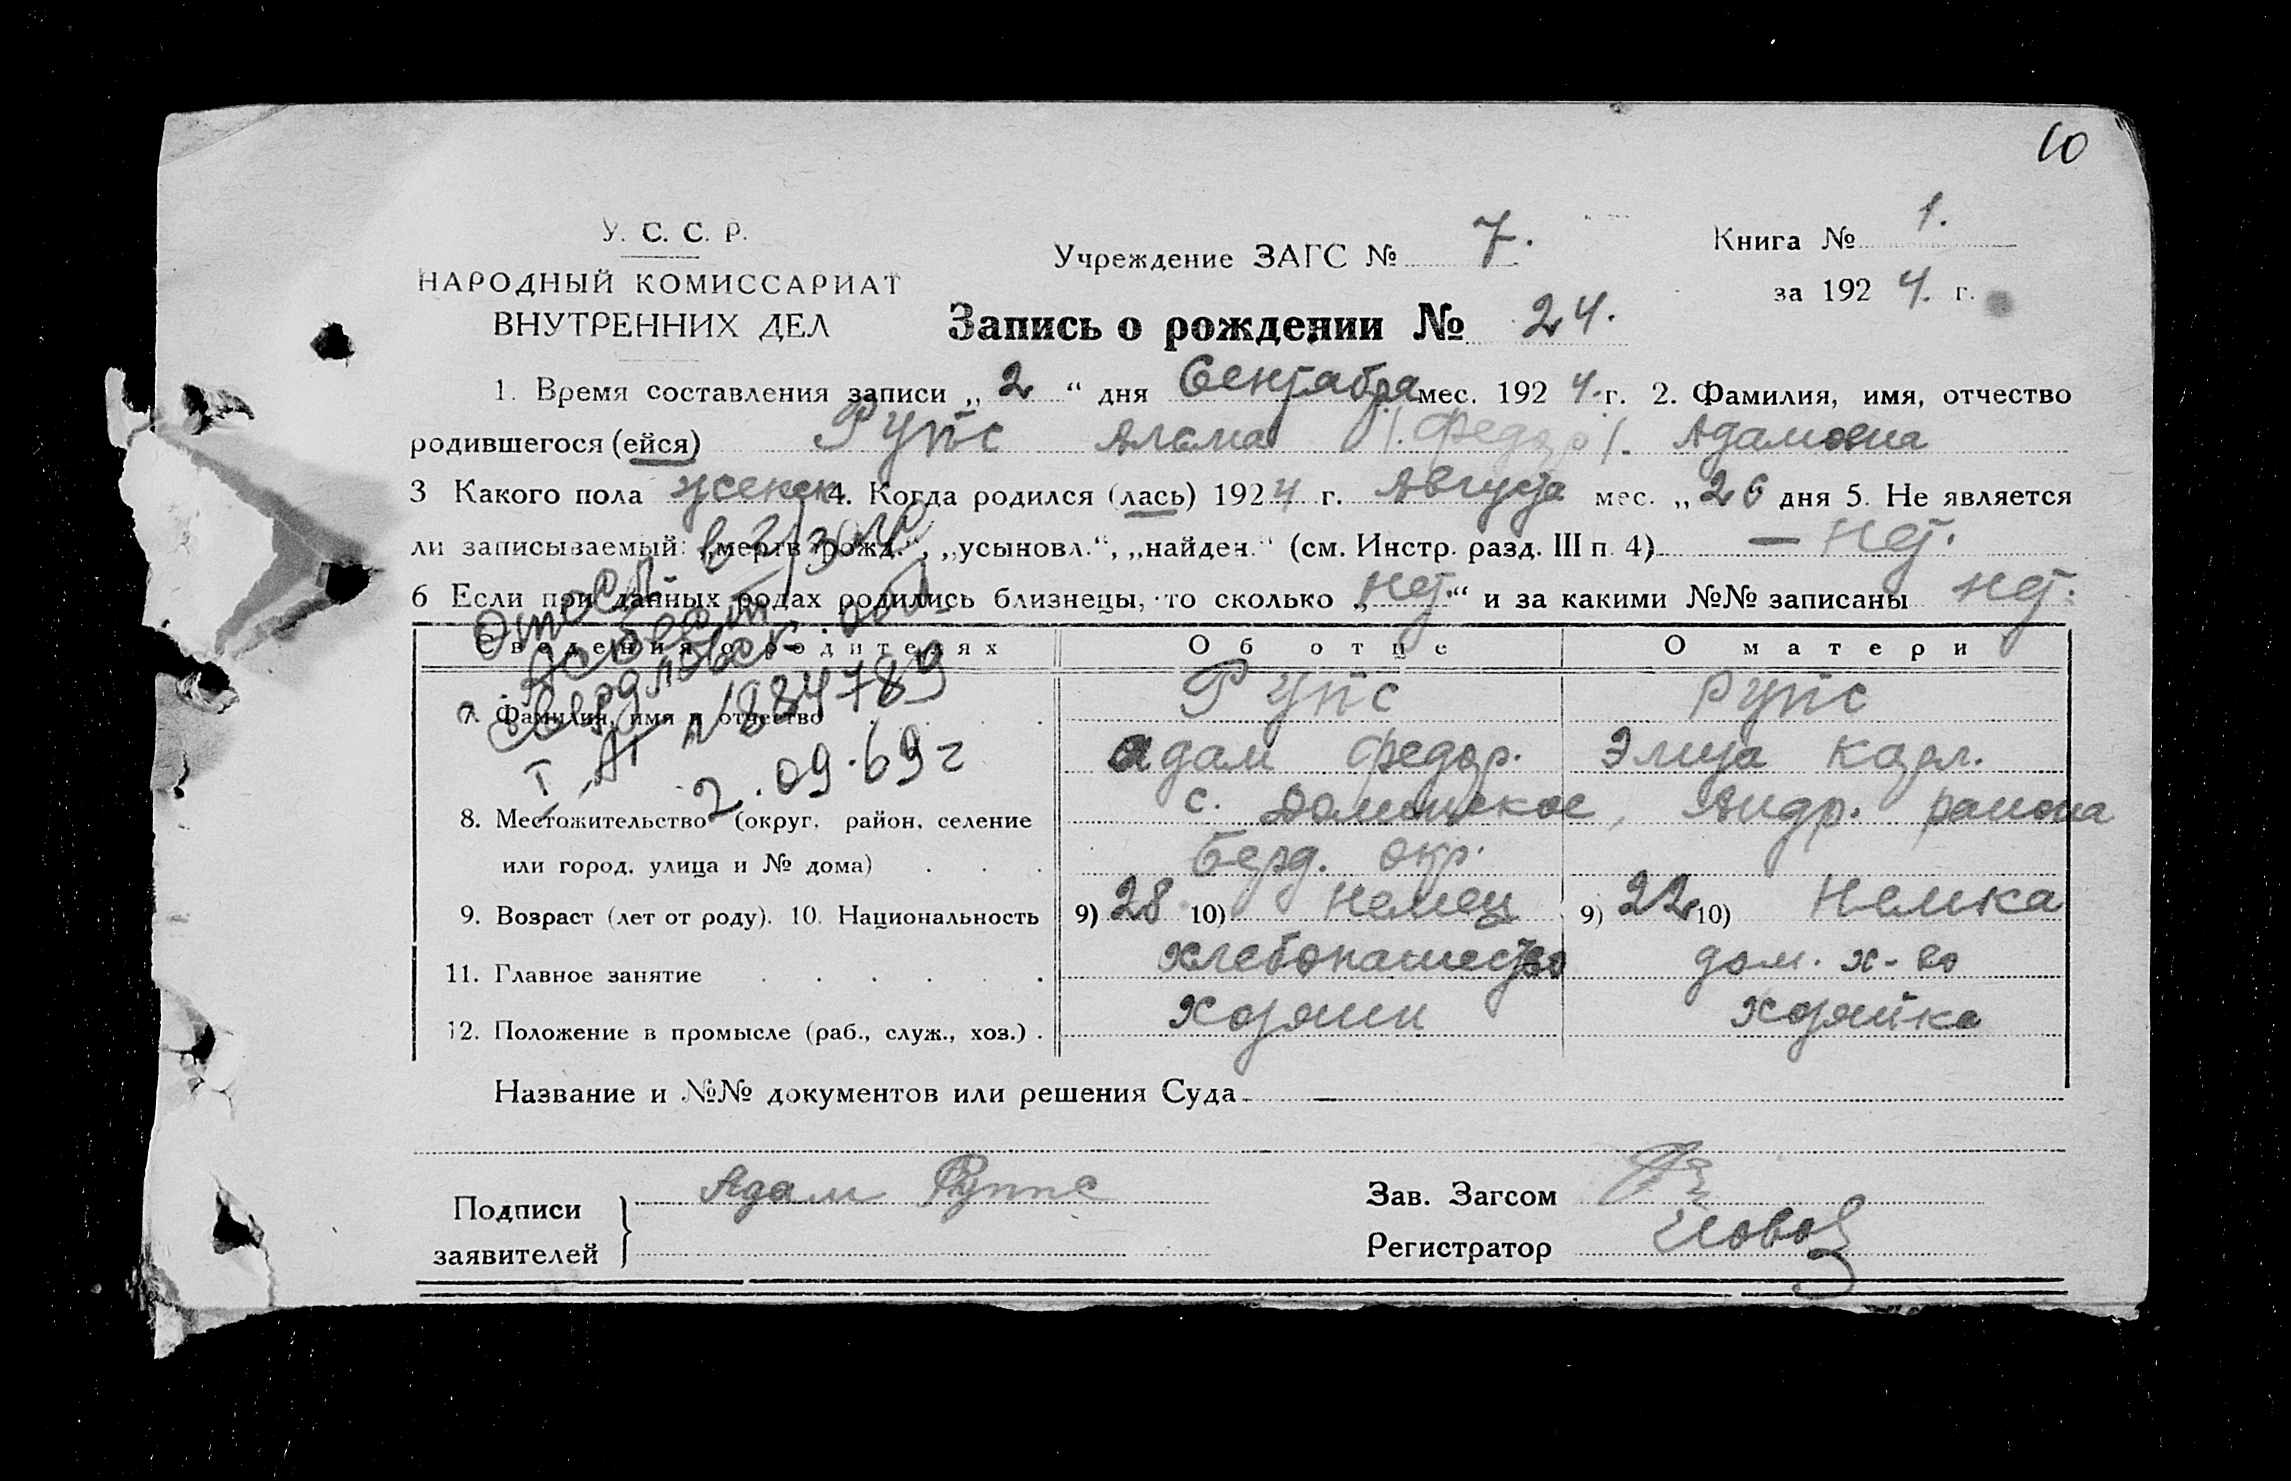 10
У. С. С. Р.
НАРОДНЫЙ КОМИССАРИАТ
ВНУТРЕННИХ ДЕЛ
Учреждение ЗАГС № 7.
Книга № 1.
за 1924. г.
Запись о рождении № 24.
1. Время составления записи „ 2 “ дня Сентября мес. 1924. г. 2. Фамилия, имя, отчество
родившегося (ейся) Рупс Альма /. Федор /. Адамовна
3 Какого пола женск 4. Когда родился (лась) 1924 г. Августа мес. „ 26 дня 5. Не является
ли записываемый: „мертв рожд.“, „усыновл.“, „найден.“ (см. Инстр. разд. III п. 4) — Нет.
6 Если при данных родах родились близнецы, то сколько „ Нет.“ и за какими №№ записаны нет.
Сведения о родителях Об отце О матери
7. Фамилия, имя и отчество Рупс Рупс
Адам Федор. Элиза Карл.
8. Местожительство (округ, район, селение с. Долинское, Андр. района
или город, улица и № дома) Берд. окр.
9. Возраст (лет от роду). 10. Национальность 9) 28 10) Немец 9) 22 10) Немка
11. Главное занятие хлебопашество дом. х-во
12. Положение в промысле (раб., служ., хоз.) Хозяин Хозяйка
св.
Асбест
Свердловск. обл
I-АГ №884789
2.09.69 г
Название и №№ документов или решения Суда —
Подписи
заявителей
Адам Руппс
Зав. Загсом
Регистратор